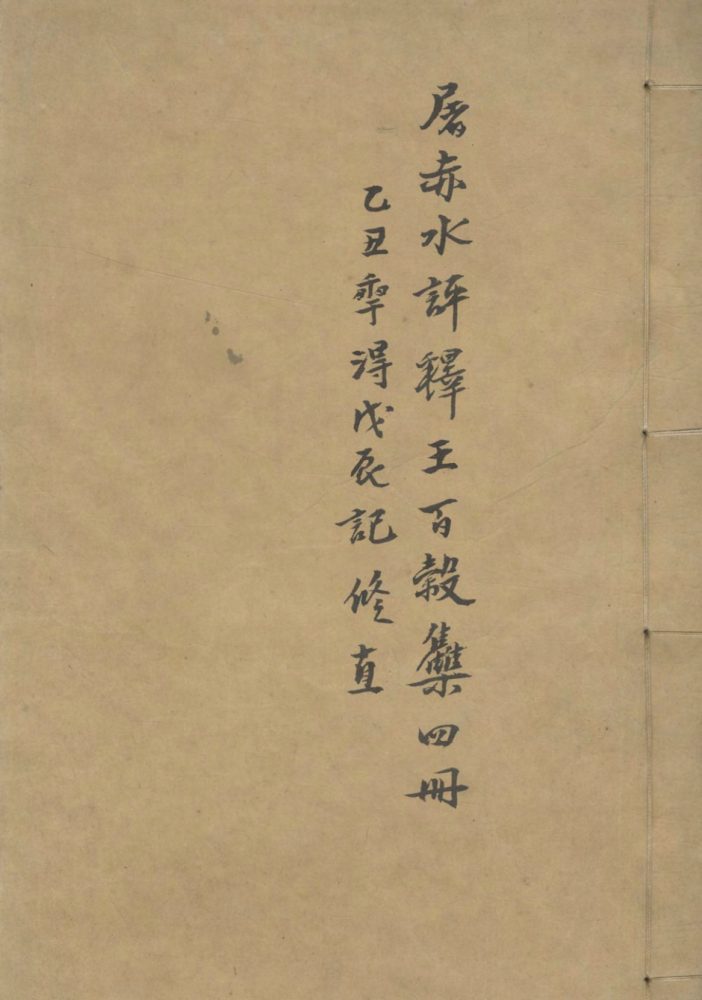 屠赤水評釋王百穀集四冊
乙丑季得戊辰記修直